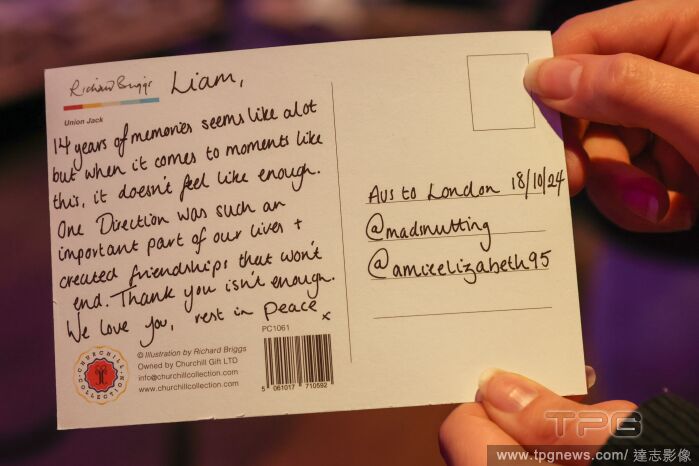 Richard Briggs
Liam,
Union Jack
14 years of memories seems like alot
but when it comes to moments like
this, it doesn't feel like enough.
One Direction was such an
important part of our lives +
created friendships that won't
end. Thank you isn't enough.
We love you, rest in peace x
Aus to London 18/10/24
@madsnutting
@amieelizabeth95
PC1061
© Illustration by Richard Briggs
Owned by Churchill Gift LTD
info@churchillcollection.com
www.churchillcollection.com
CHURCHILL COLLECTION
5 061017 710592
TPG
www.tpgnews.com/ 達志影像